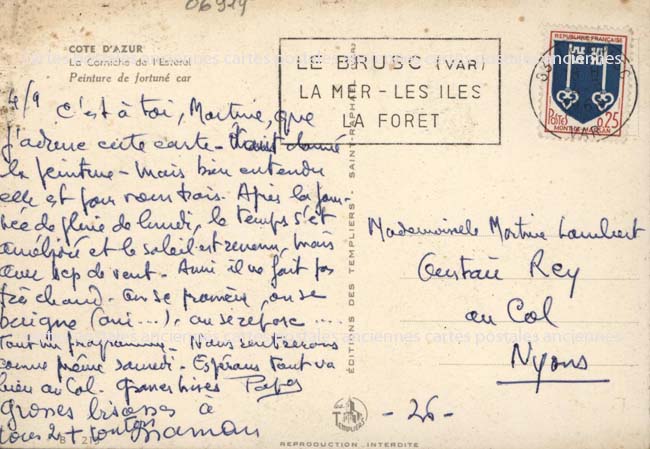 06919
COTE D'AZUR
La Corniche de l'Esterel
Peinture de fortuné car
LE BRUSC (VAR)
LA MER - LES ILES
LA FORET
REPUBLIQUE FRANÇAISE
POSTES 0,25
MONT-DE-MARSAN
4/9 C'est à toi, Martine, que
j'adresse cette carte - étant donné
la peinture - mais bien entendu
elle est pour vous trois. Après la jour-
née de pluie de lundi, le temps s'est
amélioré et le soleil est revenu, mais
avec bcp de vent - Aussi il ne fait pas
très chaud - on se promène, on se
baigne (oui...), on se repose ....
Tout un programme - Nous rentrerons
comme prévu samedi - Espérons tout va
bien au Col - Grosses bises Papa
Grosses bisesses à
tous 2 + tonton Maman
EDITIONS DES TEMPLIERS - SAINT-RAPHAEL (VAR)
Mademoiselle Martine Lambert
Rey
au Col
Nyons
- 26 -
TEMPLIERS
REPRODUCTION INTERDITE
cartes postales anciennes